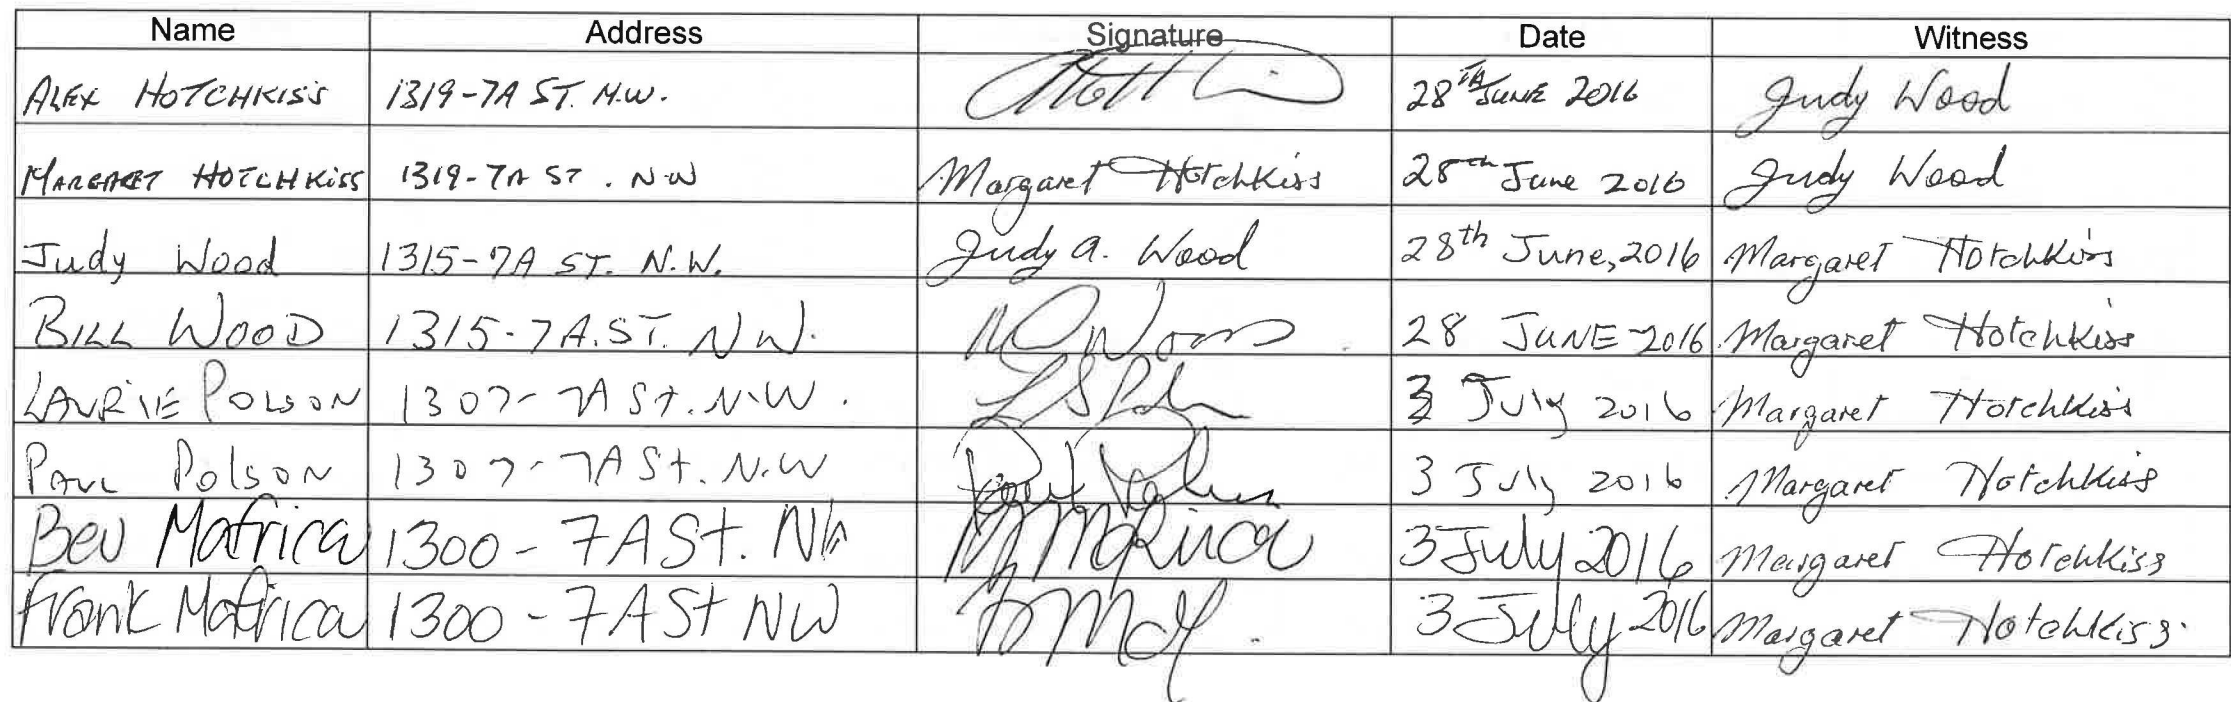 Name Address Signature Date Witness
ALEX HOTCHKISS 1319-7A ST. N.W. 28TH JUNE 2016 Judy Wood
MARGARET HOTCHKISS 1319-7A ST. N.W Margaret Hotchkiss 28th June 2016 Judy Wood
Judy Wood 1315-7A ST. N.W. Judy A. Wood 28th June, 2016 Margaret Hotchkiss
BILL WOOD 1315-7A.ST. NW. Wood 28 JUNE-2016 Margaret Hotchkiss
LAURIE POLSON 1307-7A St. N.W. 3 July 2016 Margaret Hotchkiss
PAUL POLSON 1307-7A St. N.W 3 July 2016 Margaret Hotchkiss
Bev Mafrica 1300-7A St. NW 3 July 2016 Margaret Hotchkiss
Frank Mafrica 1300-7A St NW 3 July 2016 Margaret Hotchkiss